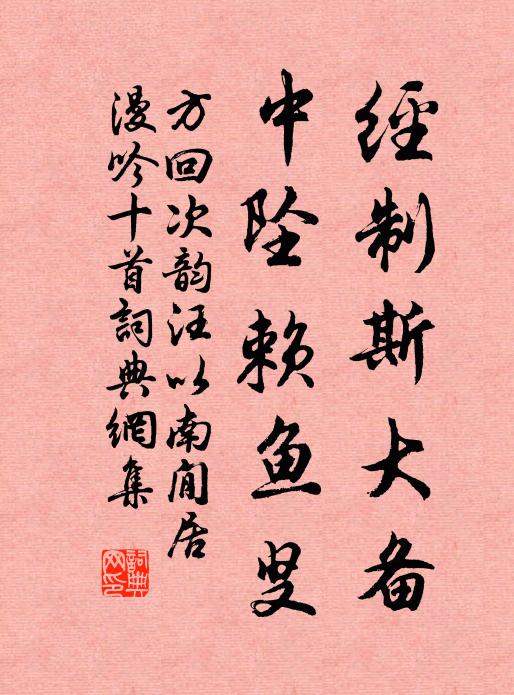 經制斯大备
中坠赖鱼叟
方回次韵汪以南闲居
漫吟十首詞典網集
詞典网印